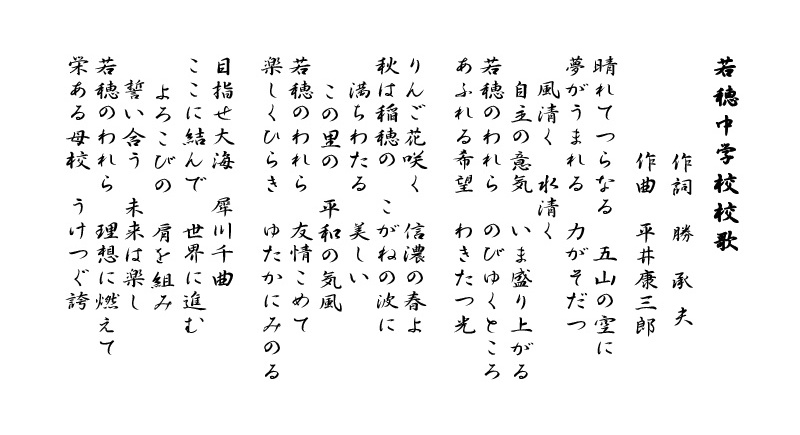 若穂中学校校歌
作詞　勝　承夫
作曲　平井康三郎
晴れてつらなる　五山の空に
夢がうまれる　力がそだつ
風清く　水清く
自主の意気　いま盛り上がる
若穂のわれら　のびゆくところ
あふれる希望　わきたつ光
りんご花咲く　信濃の春よ
秋は稲穂の　こがねの波に
満ちわたる　美しい
この里の　平和の気風
若穂のわれら　友情こめて
楽しくひらき　ゆたかにみのる
目指せ大海　犀川千曲
ここに結んで　世界に進む
よろこびの　肩を組み
誓い合う　未来は楽し
若穂のわれら　理想に燃えて
栄ある母校　うけつぐ誇